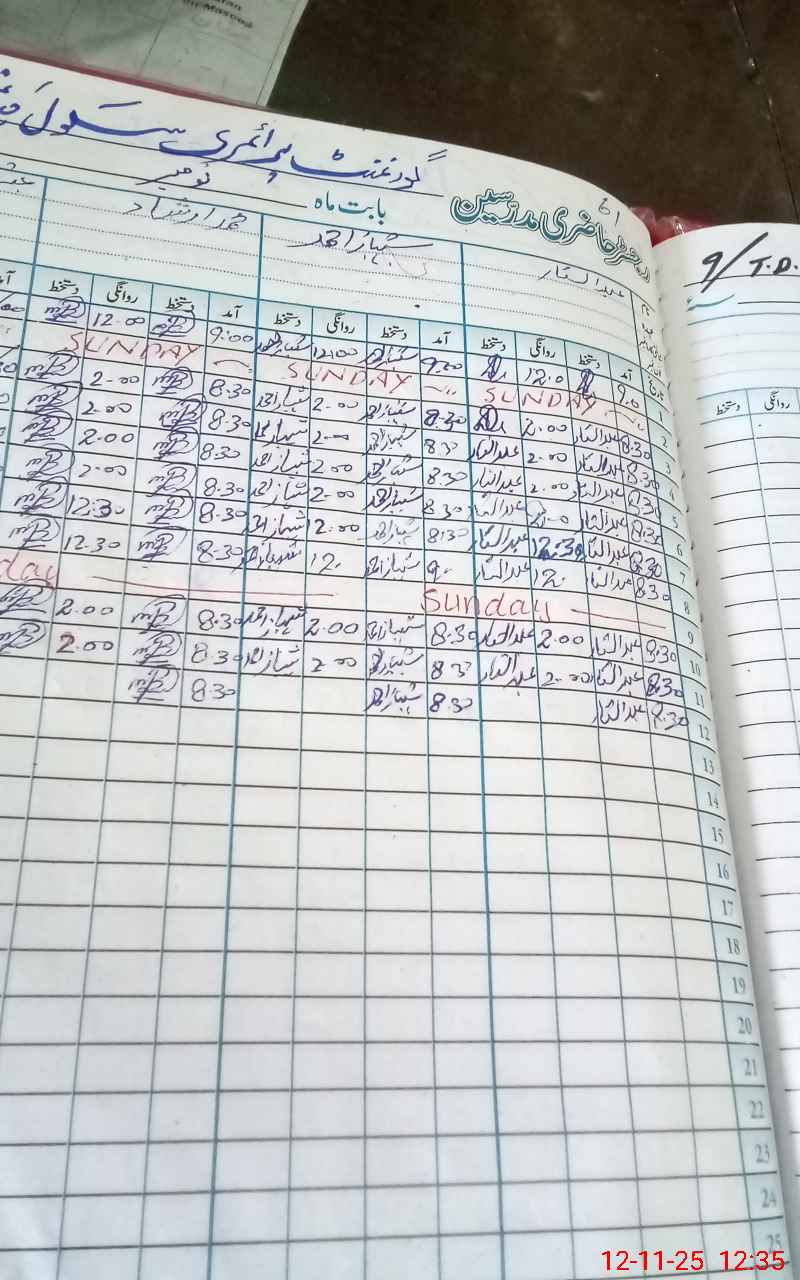 گورنمنٹ پرائمری سکول
رجسٹر حاضری مدرسین بابت ماہ نومبر
9/T.D.
عبدالستار شہباز احمد محمد ارشاد
تاریخ آمد دستخط روانگی دستخط آمد دستخط روانگی دستخط آمد دستخط روانگی دستخط
روانگی دستخط
1 9.0 12.0 9.30 شہباز احمد 12:00 شہباز احمد 9:00 12.00
2 SUNDAY SUNDAY SUNDAY
3 8.30 عبدالستار 2.00 8.30 شہباز احمد 2.00 شہباز احمد 8.30 2.00
4 8.30 عبدالستار 2.00 عبدالستار 8.30 شہباز احمد 2.00 شہباز احمد 8.30 2.00
5 8.30 عبدالستار 2.00 عبدالستار 8.30 شہباز احمد 2.00 شہباز احمد 8.30 2.00
6 8.30 عبدالستار عبدالستار 8.30 شہباز احمد 2.00 شہباز احمد 8.30 2.00
7 8.30 عبدالستار 12:30 عبدالستار 8:30 شہباز احمد 12:00 شہباز احمد 8.30 12.30
8 8.30 عبدالستار 12. عبدالستار 9. شہباز احمد 12. شہباز احمد 8.30 12.30
9 Sunday day
10 8.30 عبدالستار 2.00 عبدالستار 8.30 شہباز احمد 2.00 شہباز احمد 8.30 2.00
11 8.30 عبدالستار 2.00 عبدالستار 8.30 شہباز احمد 2.00 شہباز احمد 8.30 2.00
12 8.30 عبدالستار 8.30 شہباز احمد 8.30
13
14
15
16
17
18
19
20
21
22
23
24
25
12-11-25 12:35